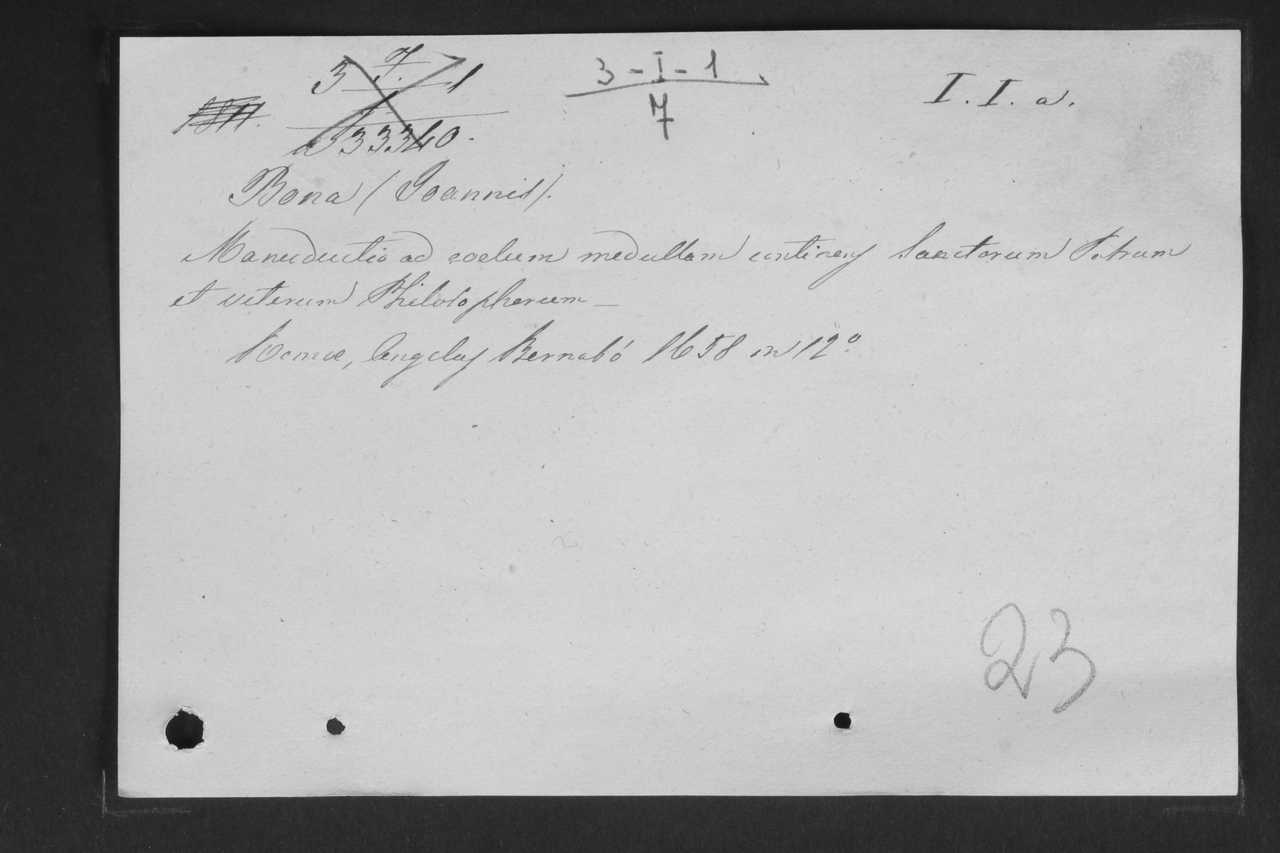 3-I-1
7
I. I. a.
Bona (Joannis).
Manuductio ad coelum medullam continens Sanctorum Patrum
et veterum Philosophorum —
Romae, Angelus Bernabó 1658 in 12º
23